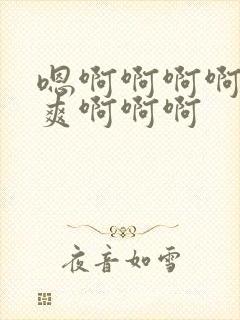 嗯啊啊啊啊
爽啊啊啊
夜音如雪